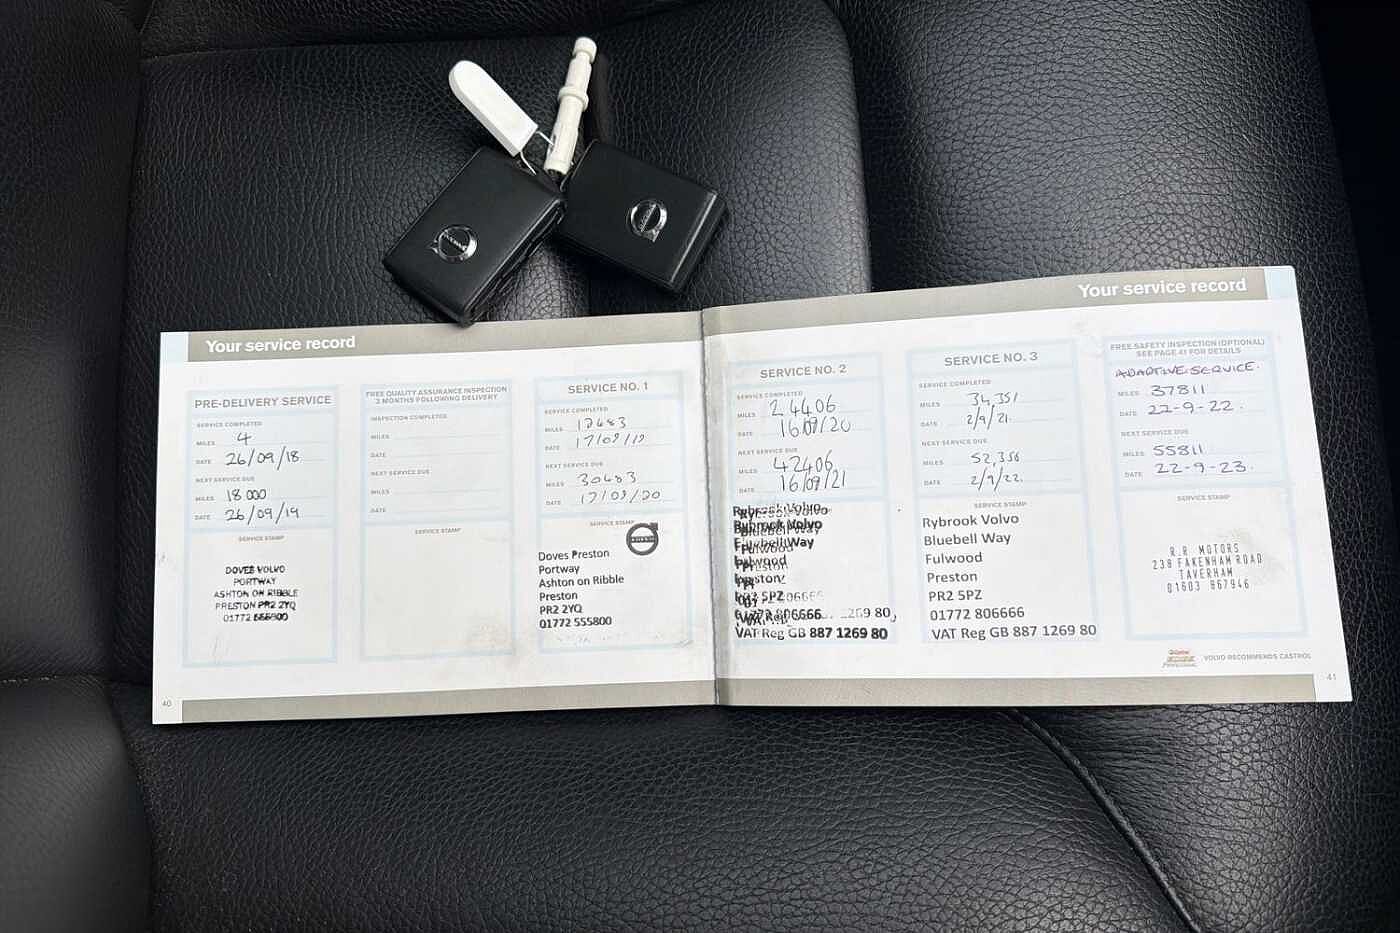 Your service record
PRE-DELIVERY SERVICE
SERVICE COMPLETED
MILES 4
DATE 26/09/18
NEXT SERVICE DUE
MILES 18 000
DATE 26/09/19
SERVICE STAMP
DOVES VOLVO
PORTWAY
ASHTON ON RIBBLE
PRESTON PR2 2YQ
01772 555800
FREE QUALITY ASSURANCE INSPECTION
3 MONTHS FOLLOWING DELIVERY
INSPECTION COMPLETED
MILES
DATE
NEXT SERVICE DUE
MILES
DATE
SERVICE STAMP
SERVICE NO. 1
SERVICE COMPLETED
MILES 12483
DATE 17/09/19
NEXT SERVICE DUE
MILES 30483
DATE 17/09/20
SERVICE STAMP
VOLVO
Doves Preston
Portway
Ashton on Ribble
Preston
PR2 2YQ
01772 555800
40
Your service record
SERVICE NO. 2
SERVICE COMPLETED
MILES 24406
DATE 16/09/20
NEXT SERVICE DUE
MILES 42406
DATE 16/09/21
Rybrook Volvo
Bluebell Way
Fulwood
Preston
PR2 5PZ
01772 806666
VAT Reg GB 887 1269 80
SERVICE NO. 3
SERVICE COMPLETED
MILES 34,351
DATE 2/9/21.
NEXT SERVICE DUE
MILES 52,356
DATE 2/9/22.
SERVICE STAMP
Rybrook Volvo
Bluebell Way
Fulwood
Preston
PR2 5PZ
01772 806666
VAT Reg GB 887 1269 80
FREE SAFETY INSPECTION (OPTIONAL)
SEE PAGE 41 FOR DETAILS
ADAPTIVE SERVICE.
MILES 37811
DATE 22-9-22.
NEXT SERVICE DUE
MILES 55811
DATE 22-9-23.
SERVICE STAMP
R.R MOTORS
238 FAKENHAM ROAD
TAVERHAM
01603 867946
Castrol
EDGE
PROFESSIONAL
VOLVO RECOMMENDS CASTROL
41